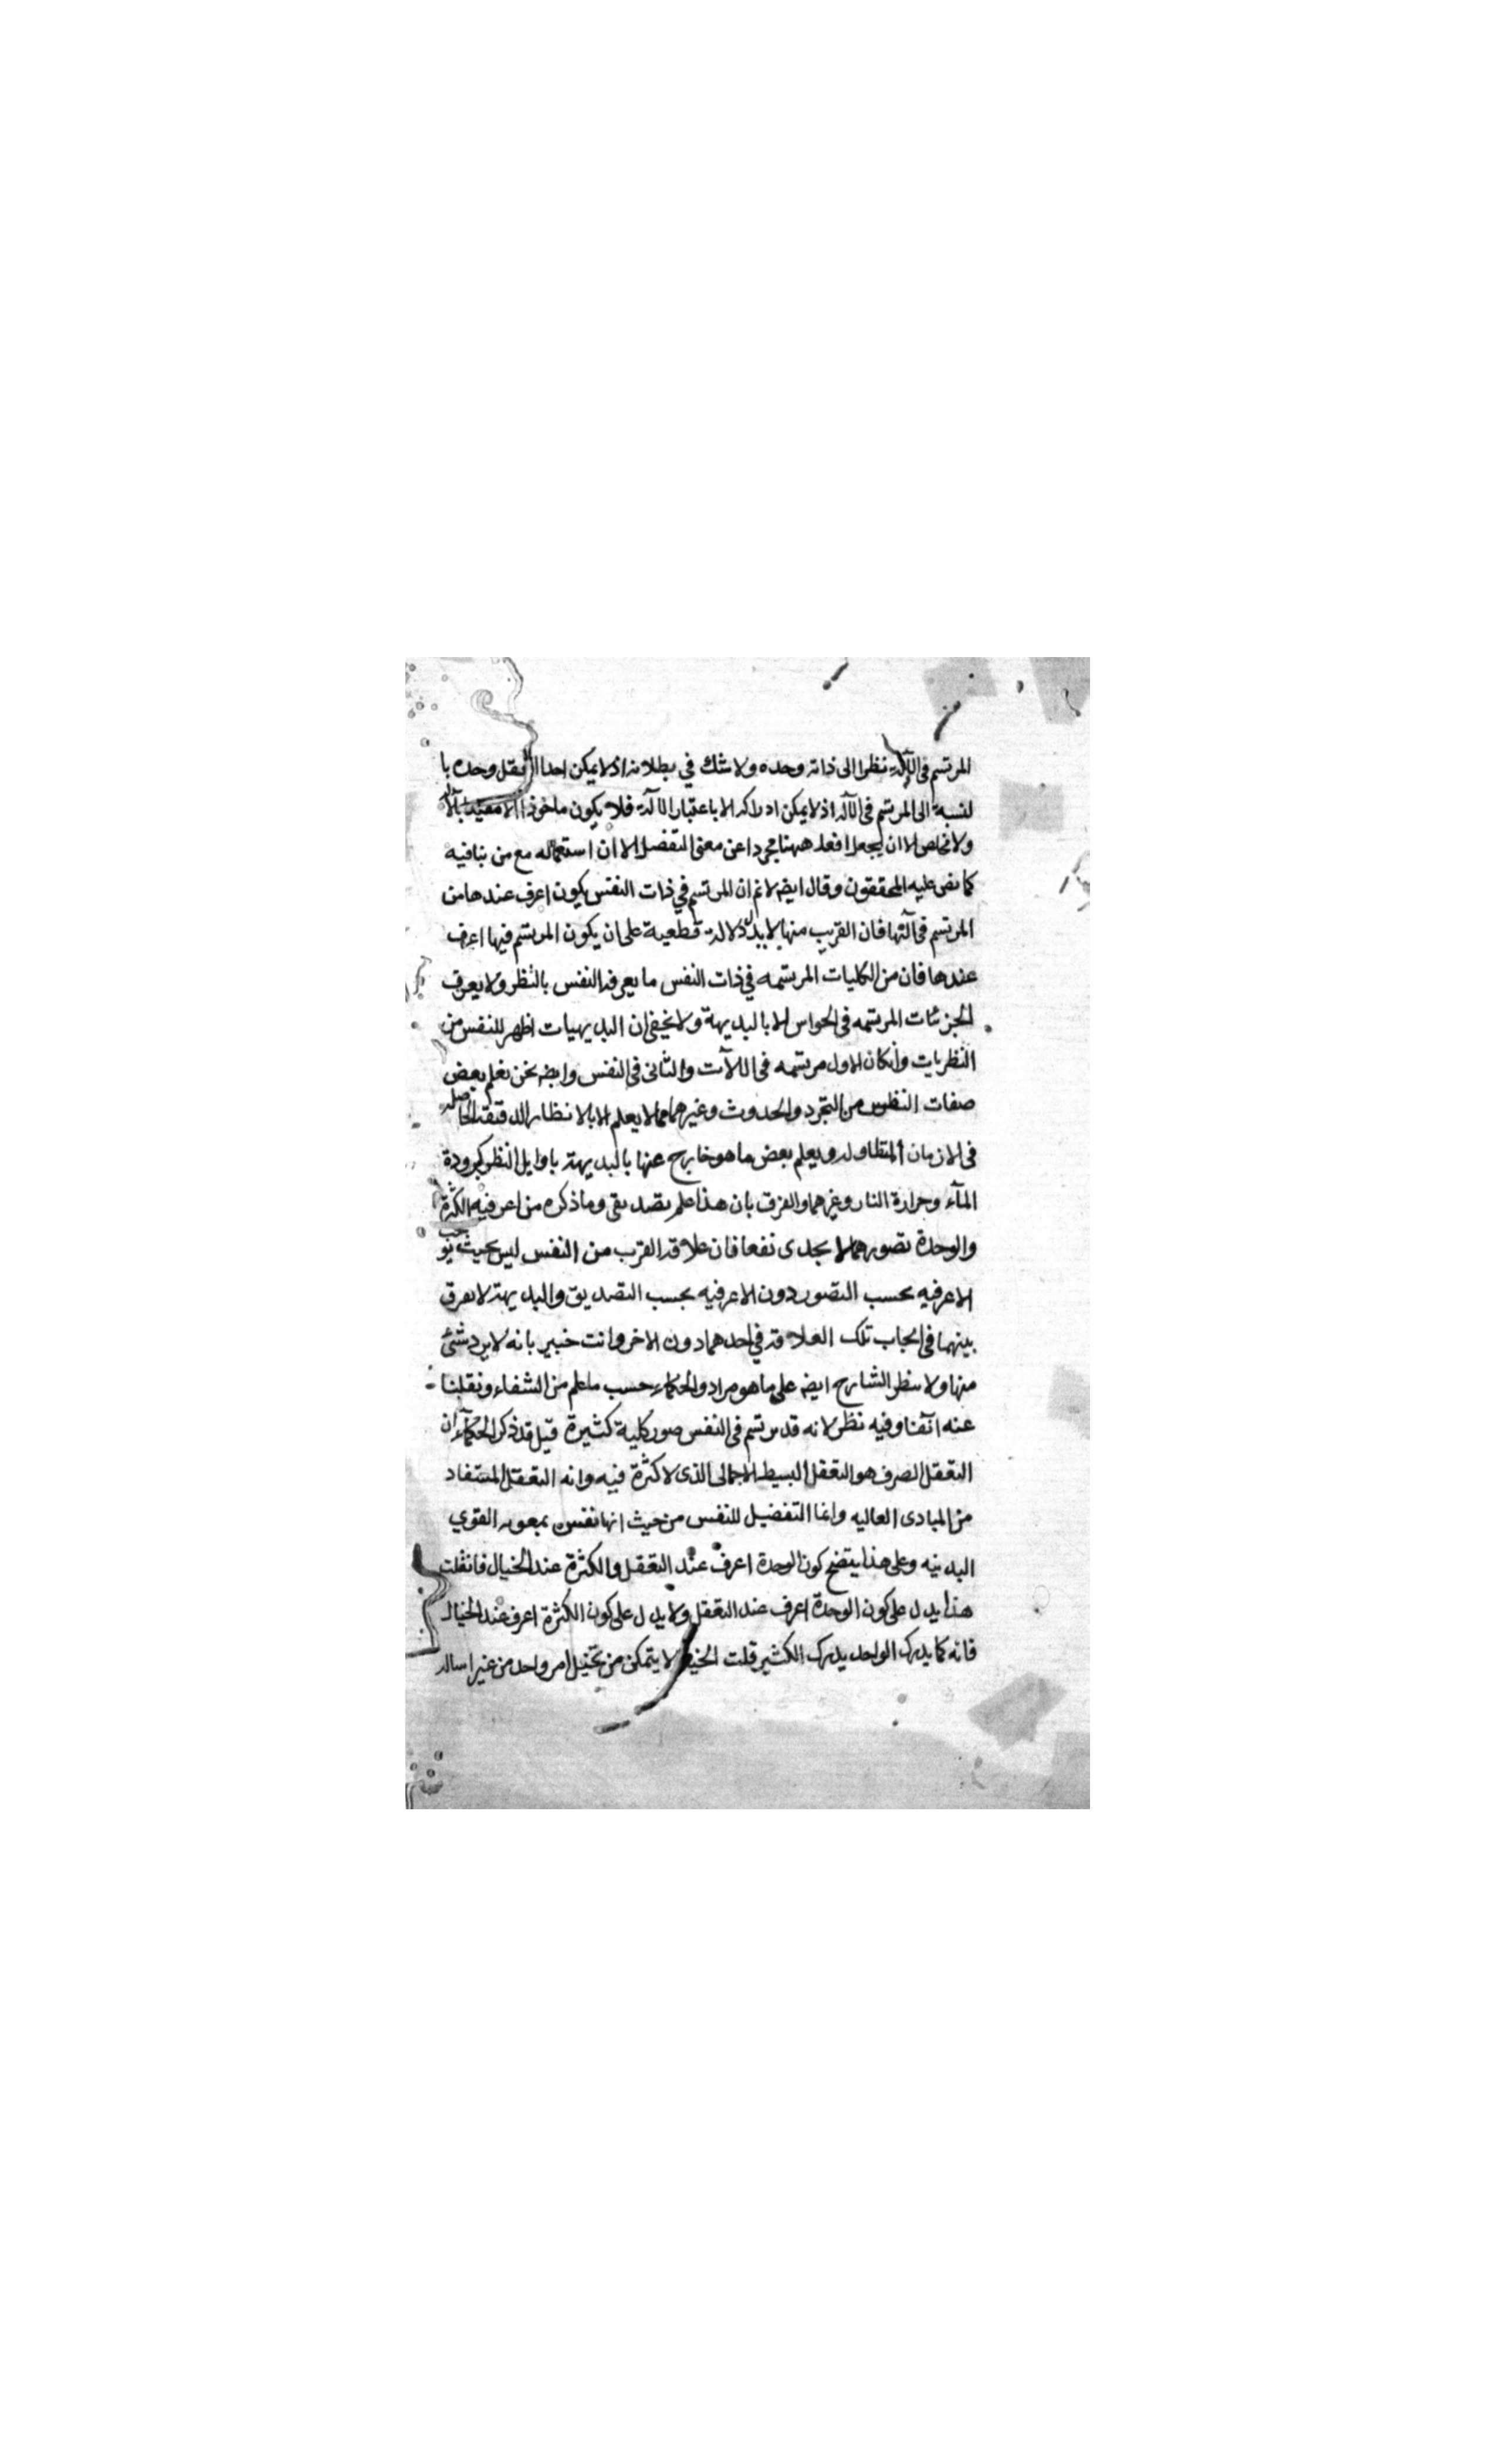 المرتسم فى الآلة نظرا الى ذاته وحده ولا شك في بطلانه اذ لا يمكن احدا التعقل وحده با
لنسبة الى المرتسم فى الآلة اذ لا يمكن ادراكه الا باعتبار الآلة فلا يكون ماخوذا الا مقيد بالآلة
ولا مخلص الا ان يجعل افعل ههنا مجردا عن معنى التفضل الا ان استعماله مع من ينافيه
كما نص عليه المحققون وقال ايضه لانم ان المرتسم في ذات النفس يكون اعرف عندها من
المرتسم فى آلتها فان القريب منها لا يدل دلالة قطعية على ان يكون المرتسم فيها اعرف
عندها فان من الكليات المرتسمه في ذات النفس ما يعرفه النفس بالنظر ولا يعرف
الجزئيات المرتسمه فى الحواس الا بالبديهة ولا يخفى ان البديهيات اظهر للنفس من
النظريات وان كان الاول مرتسمه فى اللآت والثانى فى النفس وايضه نحن نعلم بعض
صفات النفس من التجرد والحدوث وغيرهما مما لا يعلم الا بالانظار الدقيقة الحاصله
فى الازمان المتطاوله ويعلم بعض ما هو خارج عنها بالبديهة باوايل النظر كبرودة
المآء وحرارة النار وغيرهما والفرق بان هذا علم تصديقى وما ذكره من اعرفيه الكثرة
والوحدة تصورهما لا يجدى نفعا فان علاقة القرب من النفس ليس بحيث يوجب
الاعرفيه بحسب التصور دون الاعرفيه بحسب التصديق والبديهة لا تعرق
بينهما فى ايجاب تلك العلاقة في احدهما دون الاخر وانت خبير بانه لا يرد شئ
منها ولا سظر الشارح ايضه على ما هو مراد والحكماء حسب ما علم من الشفاء ونقلنا
عنه آنفا وفيه نظر لانه قد يرتسم فى النفس صور كلية كثيرة قيل قد ذكر الحكمآء ان
التعقل الصرف هو التعقل البسيط الاجمالى الذى لا كثرة فيه وانه التعقل المستفاد
من المبادى العاليه وانما التفضيل للنفس من حيث انها نفس بمعونه القوي
البدنيه وعلى هذا يتضح كون الوحدة اعرف عند التعقل والكثرة عند الخيال فان قلت
هذا يدل على كون الوحدة اعرف عند التعقل ولا يدل على كون الكثرة اعرف عند الخيال
فانه كما يدرك الواحد يدرك الكثير قلت الخيال لا يتمكن من تخيل امر واحد من غير